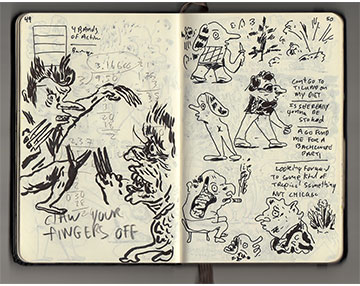 49
4 BANDS
OF ACTION
CLAW YOUR
FINGERS OFF
50
CAN'T GO TO
TIJUANA ON
MY DIET
IS SHE REALLY
GONNA BE
STONED
A GO FUND
ME FOR A
BACHELORETTE
PARTY
LOOKING FORWARD
TO SOME KIND OF
TROPICAL SOMETHING
NOT CHICAGO